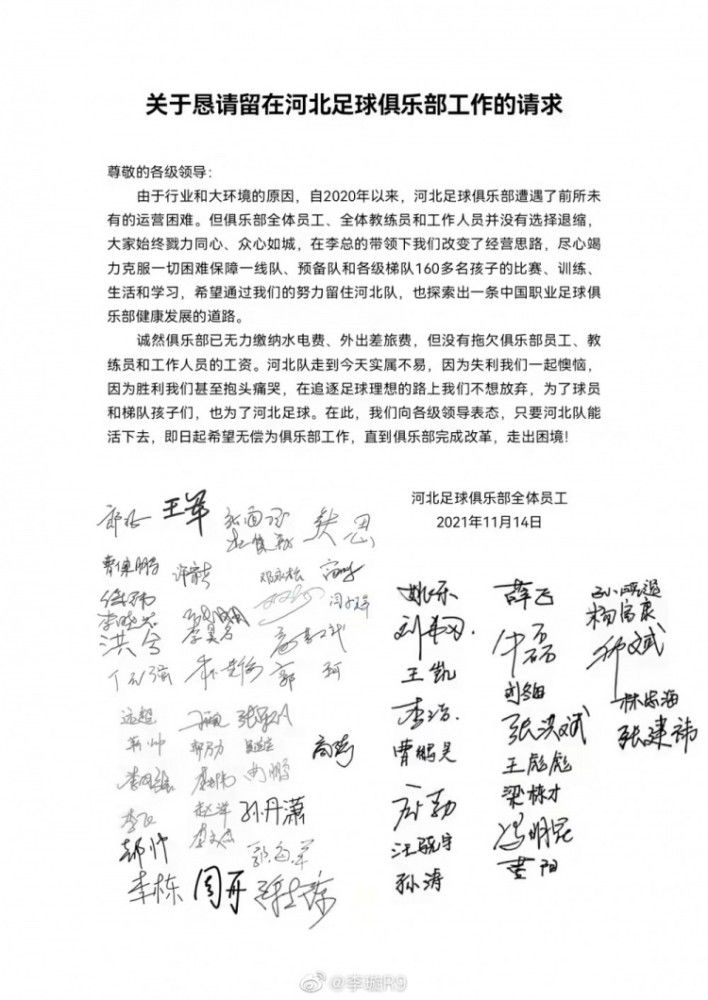 关于恳请留在河北足球俱乐部工作的请求
尊敬的各级领导：
由于行业和大环境的原因，自2020年以来，河北足球俱乐部遭遇了前所未
有的运营困难。但俱乐部全体员工、全体教练员和工作人员并没有选择退缩，
大家始终戮力同心、众心如城，在李总的带领下我们改变了经营思路，尽心竭
力克服一切困难保障一线队、预备队和各级梯队160多名孩子的比赛、训练、
生活和学习，希望通过我们的努力留住河北队，也探索出一条中国职业足球俱
乐部健康发展的道路。
诚然俱乐部已无力缴纳水电费、外出差旅费，但没有拖欠俱乐部员工、教
练员和工作人员的工资。河北队走到今天实属不易，因为失利我们一起懊恼，
因为胜利我们甚至抱头痛哭，在追逐足球理想的路上我们不想放弃，为了球员
和梯队孩子们，也为了河北足球。在此，我们向各级领导表态，只要河北队能
活下去，即日起希望无偿为俱乐部工作，直到俱乐部完成改革，走出困境！
河北足球俱乐部全体员工
2021年11月14日
王军
曹保鹏
洪兮
郭珂
远超
孙丹潇
郭海军
李栋 周开
姚乐
王凯
李浩
曹鹏昊
孙涛
薛飞
张洪斌
王彪彪
梁栋才
冯明昆
黄阳
杨富康
林忠海
张建祎
@李璇R9